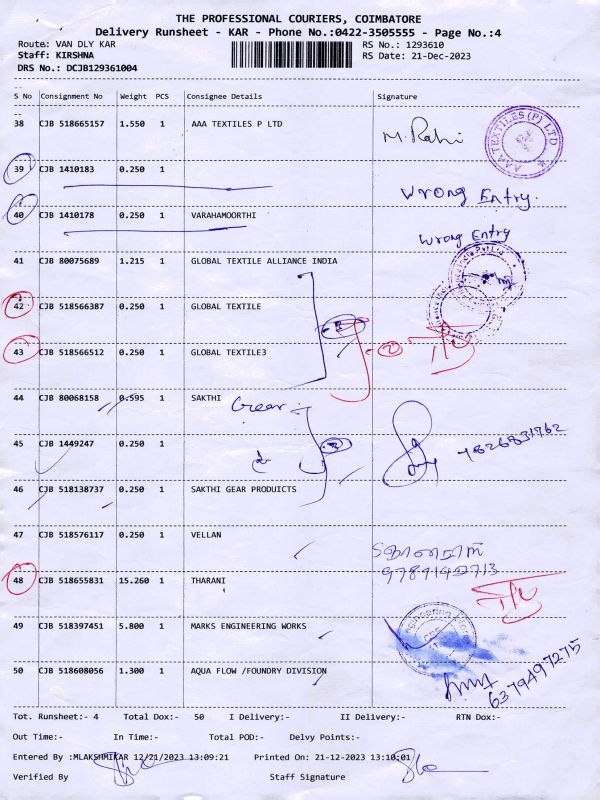 THE PROFESSIONAL COURIERS, COIMBATORE
Delivery Runsheet - KAR - Phone No.:0422-3505555 - Page No.:4
Route: VAN DLY KAR RS No.: 1293610
Staff: KIRSHNA RS Date: 21-Dec-2023
DRS No.: DCJB129361004
S No Consignment No Weight PCS Consignee Details Signature
38 CJB 518665157 1.550 1 AAA TEXTILES P LTD M. Rahi AAA TEXTILES (P) LTD
39 CJB 1410183 0.250 1 Wrong Entry.
40 CJB 1410178 0.250 1 VARAHAMOORTHI
Wrong Entry
41 CJB 80075689 1.215 1 GLOBAL TEXTILE ALLIANCE INDIA
42 CJB 518566387 0.250 1 GLOBAL TEXTILE
43 CJB 518566512 0.250 1 GLOBAL TEXTILE3
44 CJB 80068158 0.595 1 SAKTHI Gear
45 CJB 1449247 0.250 1
46 CJB 518138737 0.250 1 SAKTHI GEAR PRODUICTS
47 CJB 518576117 0.250 1 VELLAN
48 CJB 518655831 15.260 1 THARANI
49 CJB 518397451 5.800 1 MARKS ENGINEERING WORKS
50 CJB 518608056 1.300 1 AQUA FLOW /FOUNDRY DIVISION
6379497275
Tot. Runsheet:- 4 Total Dox:- 50 I Delivery:- II Delivery:- RTN Dox:-
Out Time:- In Time:- Total POD:- Delvy Points:-
Entered By :MLAKSHMIKAR 12/21/2023 13:09:21 Printed On: 21-12-2023 13:10:01
Verified By Staff Signature